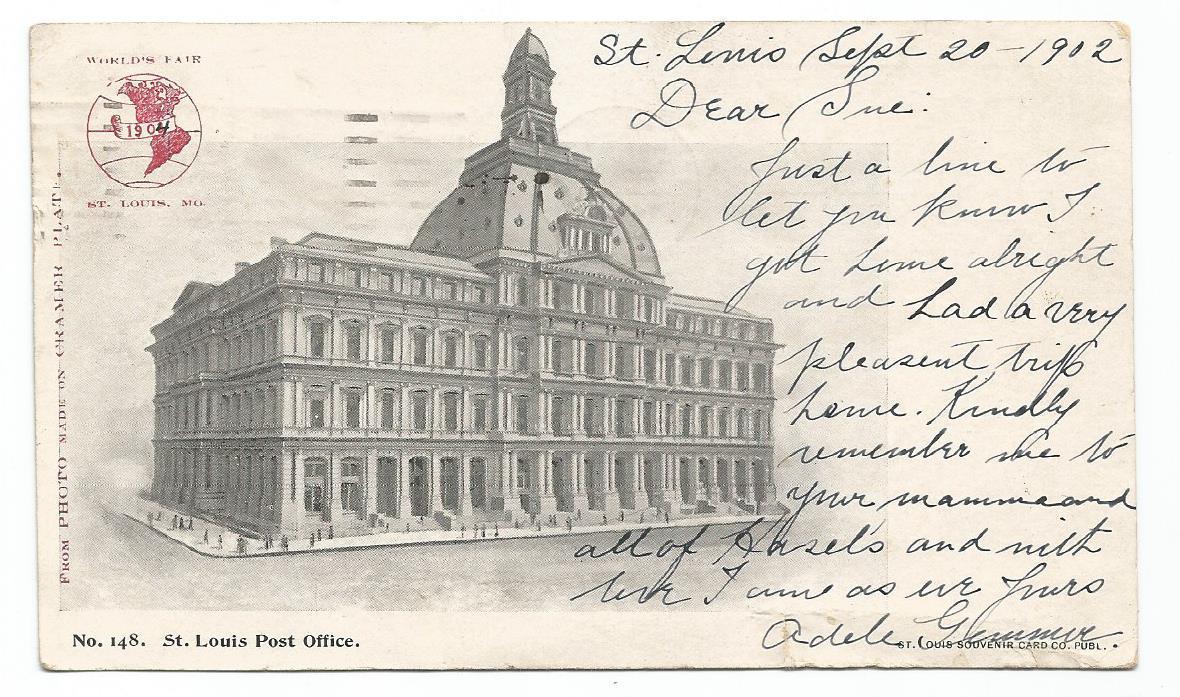 WORLD'S FAIR
1904
ST. LOUIS, MO.
FROM PHOTO MADE ON CRAMER PLATE.
St. Louis Sept 20-1902
Dear Sue:
Just a line to
let you know I
got home alright
and had a very
pleasent trip
home. Kindly
remember me to
your mamma and
all of Hazel's and with
love I am as ever Yours
Adele
No. 148. St. Louis Post Office.
ST. LOUIS SOUVENIR CARD CO. PUBL.